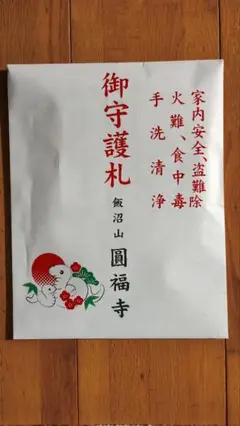 家内安全、盗難除
火難、食中毒
手洗清浄
御守護札
飯沼山 圓福寺